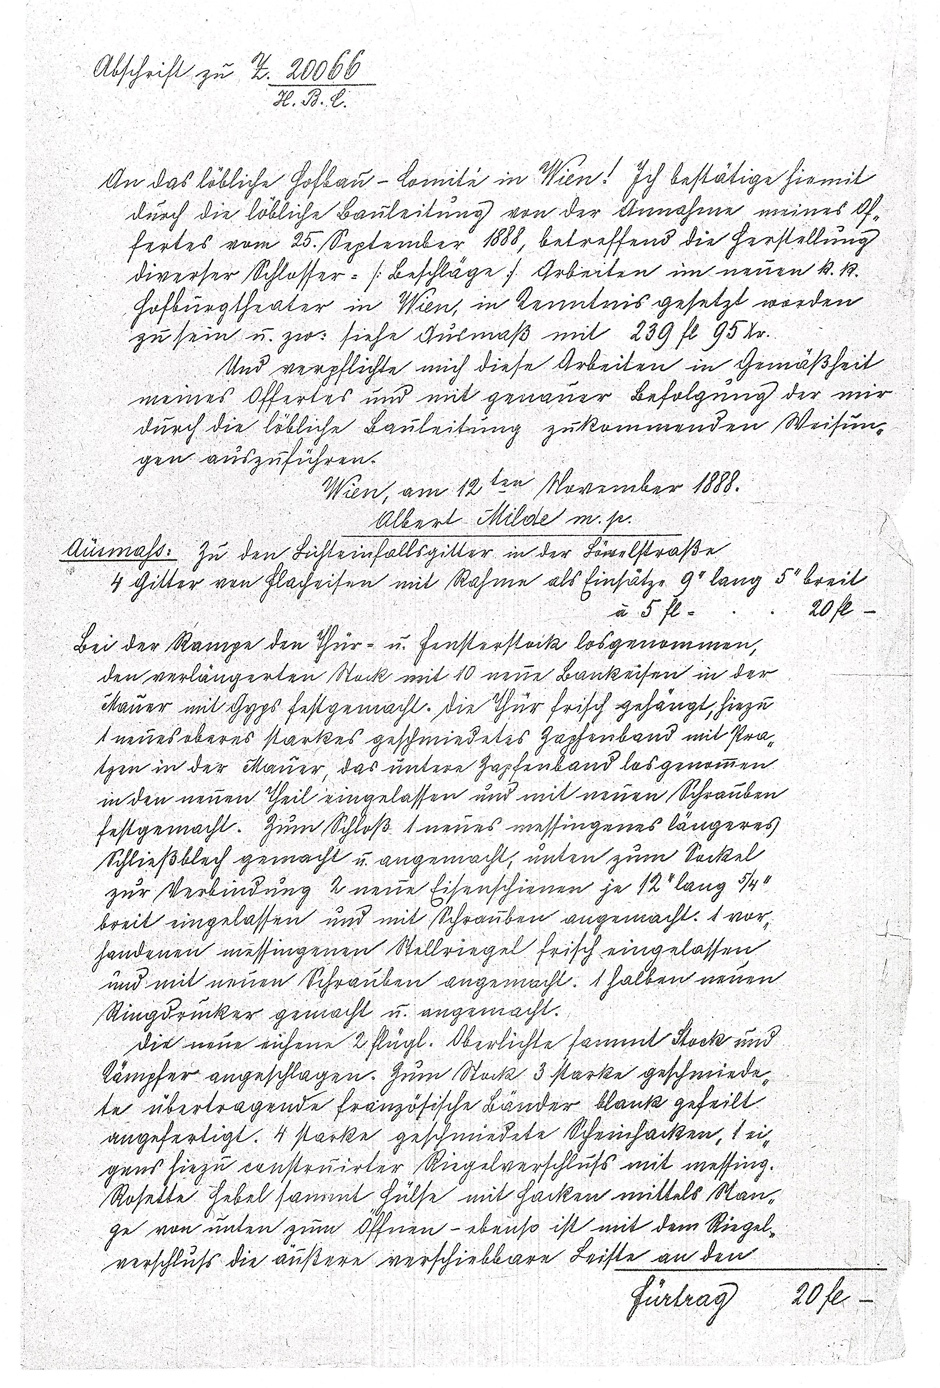 Abschrift zu Z. 20066
H. B. C.
An das löbliche Hofbau-Comité in Wien! Ich bestätige hiemit
durch die löbliche Bauleitung von der Annahme meines Of-
fertes vom 25. September 1888, betreffend die Herstellung
diverser Schlosser- /: Beschläge :/ Arbeiten im neuen k. k.
Hofburgtheater in Wien, in Kenntnis gesetzt worden
zu sein u. zw: siehe Ausmaß mit 239 fl 95 Kr.
Und verpflichte mich diese Arbeiten in Gemäßheit
meines Offertes und mit genauer Befolgung der mir
durch die löbliche Bauleitung zukommenden Weisun-
gen auszuführen.
Wien, am 12ten November 1888.
Albert Milde m. p.
Ausmass: Zu den Lichteinfallsgitter in der Löwelstraße
4 Gitter von Flacheisen mit Rahme als Einsätze 9" lang 5" breit
à 5 fl - . . 20 fl —
Bei der Rampe den Thür- u. Fensterstock losgenommen,
den verlängerten Stock mit 10 neue Bankeisen in der
Mauer mit Gyps festgemacht. Die Thür frisch gehängt, hiezu
1 neues oberes starkes geschmiedetes Zapfenband mit Pra-
tzen in der Mauer, das untere Zapfenband losgenommen
in den neuen Theil eingelassen und mit neuen Schrauben
festgemacht. Zum Schloß 1 neues messingenes längeres
Schließblech gemacht u. angemacht, unten zum Sockel
zur Verbindung 2 neue Eisenschienen je 12" lang 5/4"
breit eingelassen und mit Schrauben angemacht. 1 vor-
handenen messingenen Stellriegel frisch eingelassen
und mit neuen Schrauben angemacht. 1 halben neuen
Ringdrucker gemacht u. angemacht.
Die neue eichene 2 flügl. Oberlichte sammt Stock und
Kämpfer angeschlagen. Zum Stock 3 starke geschmiede-
te übertragende französische Bänder blank gefeilt
angefertigt. 4 starke geschmiedete Scheinhacken, 1 ei-
gens hiezu construirter Riegelverschluss mit messing.
Rosette Hebel sammt Hülse mit Hacken mittels Stan-
ge von unten zum Öffnen - ebenso ist mit dem Riegel-
verschluss die äußere verschiebbare Leiste an den
Fürtrag 20 fl —